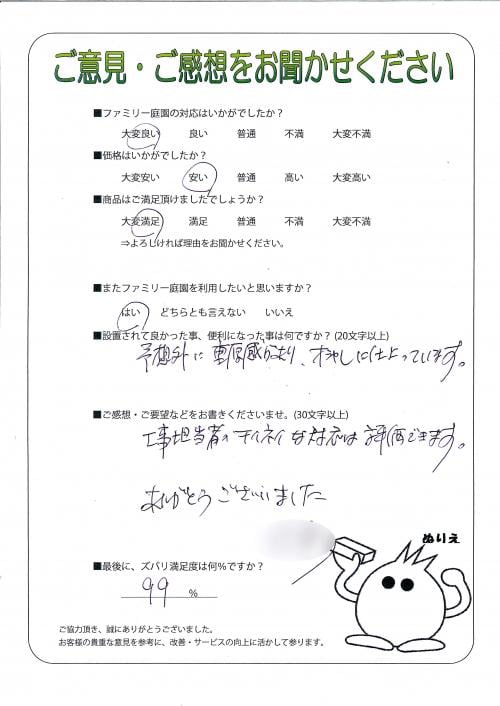 ご意見・ご感想をお聞かせください
■ファミリー庭園の対応はいかがでしたか？
大変良い 良い 普通 不満 大変不満
■価格はいかがでしたか？
大変安い 安い 普通 高い 大変高い
■商品はご満足頂けましたでしょうか？
大変満足 満足 普通 不満 大変不満
⇒よろしければ理由をお聞かせください。
■またファミリー庭園を利用したいと思いますか？
はい どちらとも言えない いいえ
■設置されて良かった事、便利になった事は何ですか？(20文字以上)
予想外に重厚感があり、オシャレに仕上っています。
■ご感想・ご要望などをお書きくださいませ。(30文字以上)
工事担当者のテイネイな対応は評価できます。
ありがとうございました
ぬりえ
■最後に、ズバリ満足度は何％ですか？
99 ％
ご協力頂き、誠にありがとうございました。
お客様の貴重な意見を参考に、改善・サービスの向上に活かして参ります。